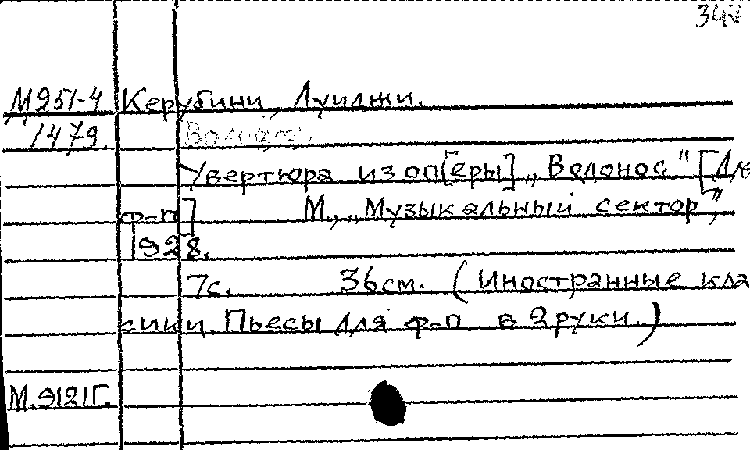 М251-4 Керубини, Луиджи.
1479.
Увертюра из оп[еры] „Водонос" [Для
ф-п] М., „Музыкальный сектор",
1928.
7с. 36см. (Иностранные клас
сики. Пьесы для ф-п в 2 руки.)
М.9121г.